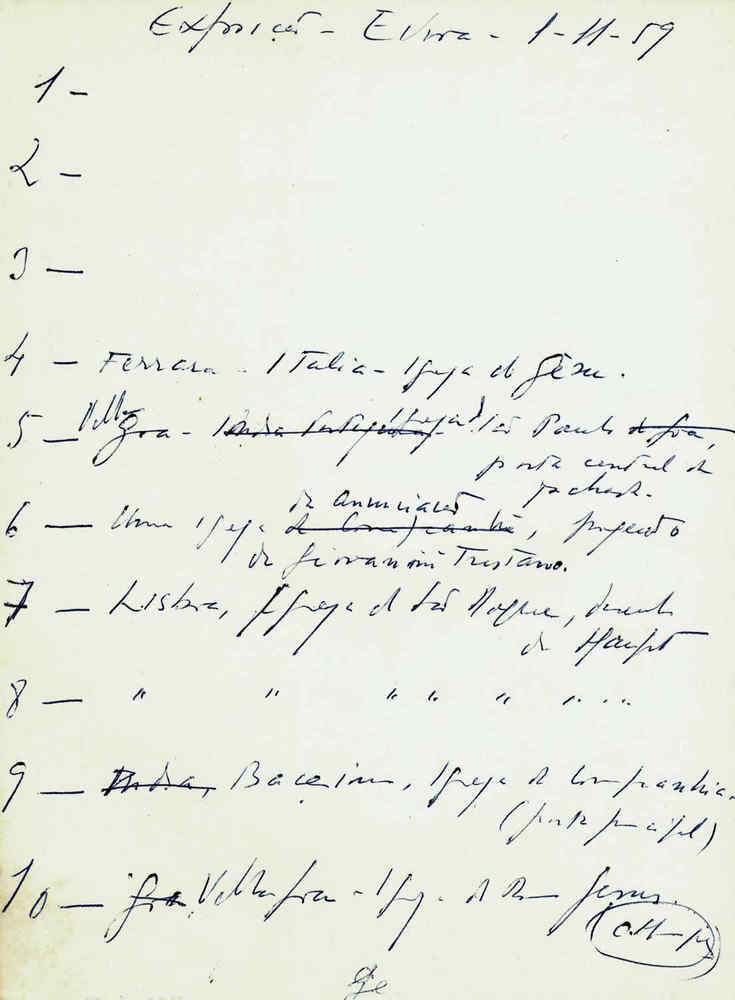 Exposição - Evora - 1-11-59
1 -
2 -
3 —
4 — Ferrara - Italia - Igreja do Gèsu.
5 — Velha Goa - India Portuguesa - Igreja de São Paulo de Goa,
porta central da
fachada.
da Anunciação
6 — Uma Igreja da Companhia, projecto
de Giovanni Tristano.
7 — Lisboa, Igreja de São Roque, desenho
de Haupt
8 — " " " " " " " "
9 — India, Baçaim, Igreja da Companhia.
(porta principal)
10 — Goa Velha Goa - Igreja do Bom Jesus.